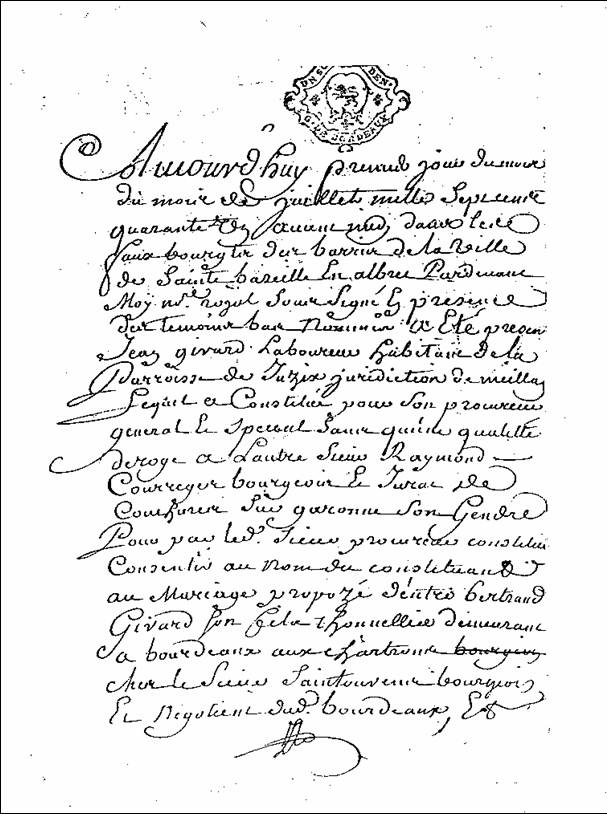 UN SO DEN
G. DE BORDEAUX
Aujourdhuy premier jour du mois
du mois de juillet mille sept cens
quarante avant midy dans le
faux bourg des barris de la ville
de Sainte bazeille En albret Pardevant
Moy nre royal Soussigné Et presence
des temoins bas Nommés a Eté presen
Jean girard Laboureur habitant de la
Parroisse de Juzix juridiction de meilla
Lequel a Constitué pour Son procureur
general Et Special Sans que une quallitte
deroge a Lautre Sieur Raymond
Courreges bourgeois Et Jurat de
Couthures Sur garonne Son Gendre
Pour par led. Sieur procureur constitué
Consentir au Nom du constituant
au Mariage propozé d'entre bertrand
Girard Son fils thonnellier demeurant
a bourdeaux aux Chartrons bourgeois
chez le Sieur Saintouvein bourgeois
Et Negotient dud. bourdeaux, Et